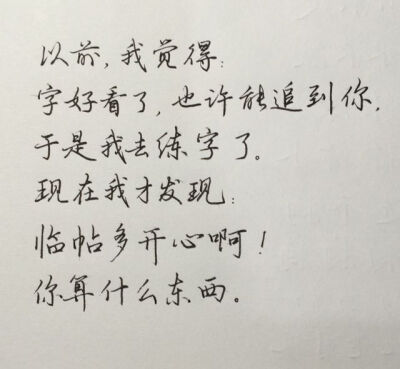 以前,我觉得:
字好看了,也许能追到你,
于是我去练字了。
现在我才发现:
临帖多开心啊!
你算什么东西。